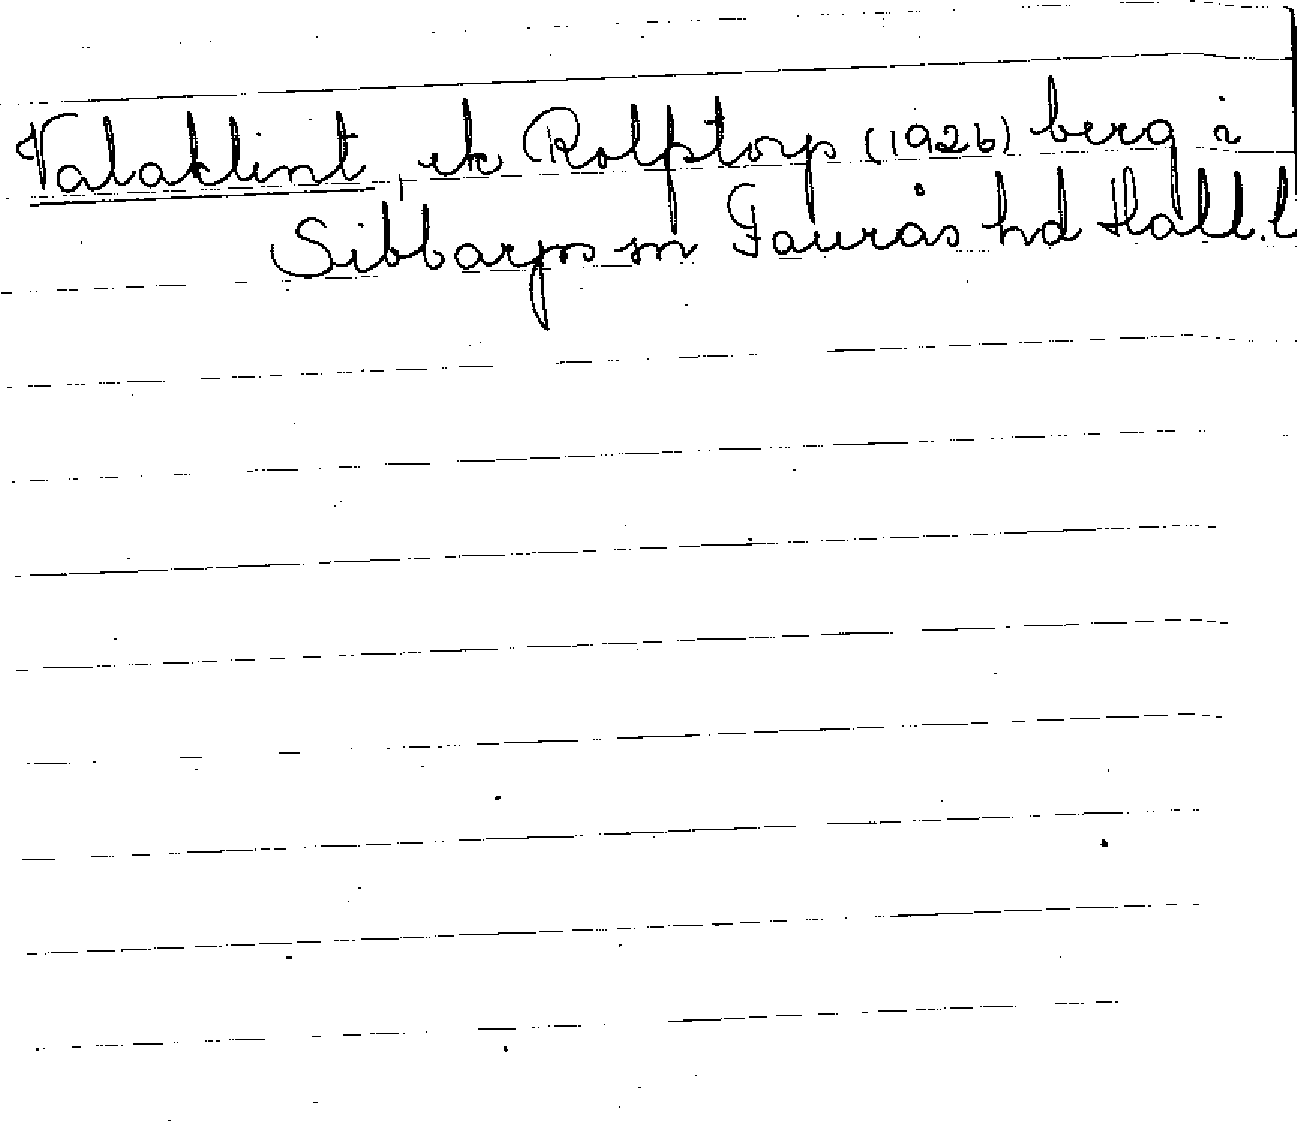 Valaklint, ek Rolfstorp (1926) berg i
Sibbarps sn Faurås hd Hall. l